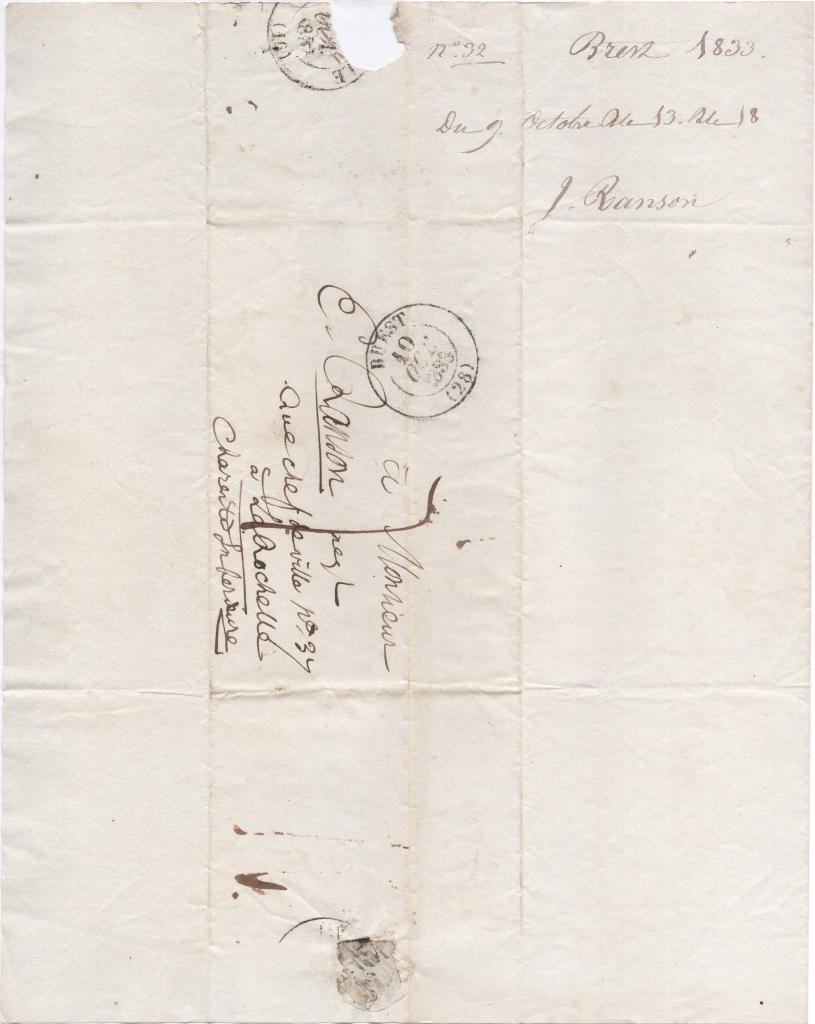 n° 32
Brest 1833.
Du 9. Octobre De 13. De 18
J. Ranson
(16)
BREST
10
OCT
1833
(28)
à Monsieur
C. Ranson negt
Rue chef de ville no. 37
à La Rochelle
Charente Inferieure